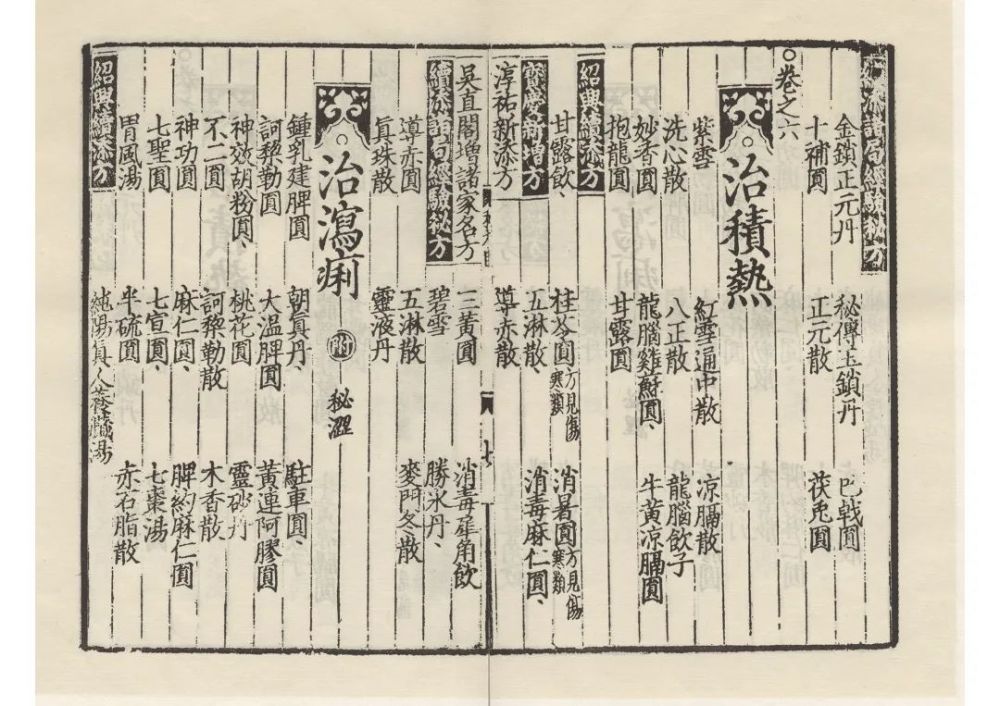 續添諸局經驗秘方
金鎖正元丹 秘傳玉鎖丹 巴戟圓
十補圓 正元散 茯兎圓
○卷之六
○治積熱
紫雪 紅雪通中散 凉膈散
洗心散 八正散 龍腦飲子
妙香圓 龍腦雞蘇圓、 牛黃凉膈圓
抱龍圓 甘露圓
紹興續添方
甘露飲、 桂苓圓方見傷寒類 消暑圓方見傷寒類
寶慶新增方 五淋散、 消毒麻仁圓、
淳祐新添方 導赤散、
七
吳直閣增諸家名方 三黃圓 消毒犀角飲
續添諸局經驗秘方 碧雪 勝氷丹、
導赤圓 五淋散 麥門冬散
真珠散 靈液丹
○治瀉痢 附 秘澀
鍾乳建脾圓 朝真丹、 駐車圓、
訶棃勒圓 大温脾圓 黃連阿膠圓
神效胡粉圓、 桃花圓 靈砂丹
不二圓 訶棃勒散 木香散
神功圓 麻仁圓、 脾約麻仁圓
七聖圓 七宣圓、 七棗湯
胃風湯 半硫圓 赤石脂散
紹興續添方 純陽真人養臟湯